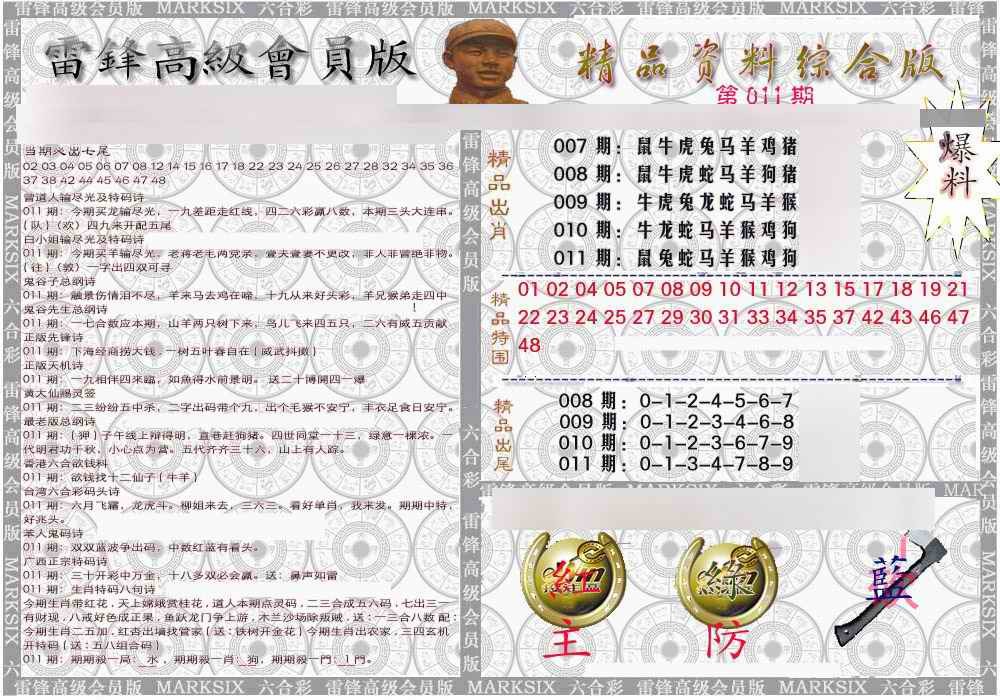 雷锋高级会员版 MARKSIX 六合彩 雷锋高级会员版 MARKSIX 六合彩 雷锋高级会员版
雷鋒高級會員版
精品资料综合版
第 011 期
爆料
当期火出七尾
02 03 04 05 06 07 08 12 14 15 16 17 18 22 23 24 25 26 27 28 32 34 35 36
37 38 42 44 45 46 47 48
曾道人输尽光及特码诗
011 期：今期买龙输尽光，一九差距走红线，四二六彩赢八数，本期三头大连串。
{ 队 }（欢）四九来开配五尾
白小姐输尽光及特码诗
011 期：今期买羊输尽光，老蒋老毛两党亲，壹夫壹妻不更改，非人非冒绝非物。
{ 往 }（敦）一字出四双可寻
鬼谷子总纲诗
011 期：融景伤情泪不尽，羊来马去鸡在啼，十九从来好头彩，羊兄猴弟走四中
鬼谷先生总纲诗
011 期：一七合数应本期，山羊两只树下来，鸟儿飞来四五只，二六有威五贡献
正版先锋诗
011 期：下海经商捞大钱，一树五叶春自在 { 威武抖擞 }
正版天机诗
011 期：一九相伴四来臨，如魚得水前景明。 送二十博開四一爆
黄大仙赐灵签
011 期：二三纷纷五中杀，二字出码带个九，出个毛猴不安宁，丰衣足食日安宁。
最老版总纲诗
011 期：{ 狎 } 子午线上辩得明，直巷赶狗猪。四世同堂一十三，绿意一棵浓。一
代明君功千秋，小心点为营。五代齐齐三十六，山上有人踪。
香港六合欲钱料
011 期：欲钱找十二仙子 { 牛羊 }
台湾六合彩码头诗
011 期：六月飞霜，龙虎斗。柳姐来去，三六三。看好单肖，我来发。期期中特，
好兆头。
本人鬼码诗
011 期：双双蓝波争出码，中数红蓝有看头。
广西正宗特码诗
011 期：三十开彩中万金，十八多双必会赢。送：鼻声如雷
011 期：生肖特码八句诗
今期生肖带红花，天上嫦娥赏桂花，道人本期点灵码，二三合成五六码，七出三一
有财现，八戒好色成正果，鱼跃龙门争上游，木兰沙场除叛贼，送：一三合八数 配：
今期生肖二五加，红杏出墙找管家 { 送：铁树开金花 } 今期生肖出农家，三四玄机
开特码 { 送：五八组合码 }
011 期：期期殺一局：水，期期殺一肖：狗，期期殺一門：1 門。
精品出肖
007 期：鼠牛虎兔马羊鸡猪
008 期：鼠牛虎蛇马羊狗猪
009 期：牛虎兔龙蛇马羊猴
010 期：牛龙蛇马羊猴鸡狗
011 期：鼠兔蛇马羊猴鸡狗
精品特围
01 02 04 05 07 08 09 10 11 12 13 15 17 18 19 21
22 23 24 25 27 29 30 31 33 34 35 37 42 43 46 47
48
精品出尾
008 期：0-1-2-4-5-6-7
009 期：0-1-2-3-4-6-8
010 期：0-1-2-3-6-7-9
011 期：0-1-3-4-7-8-9
紅
主
綠
防
藍
雷锋高级会员版 MARKSIX 六合彩 雷锋高级会员版 MARKSIX 六合彩 雷锋高级会员版